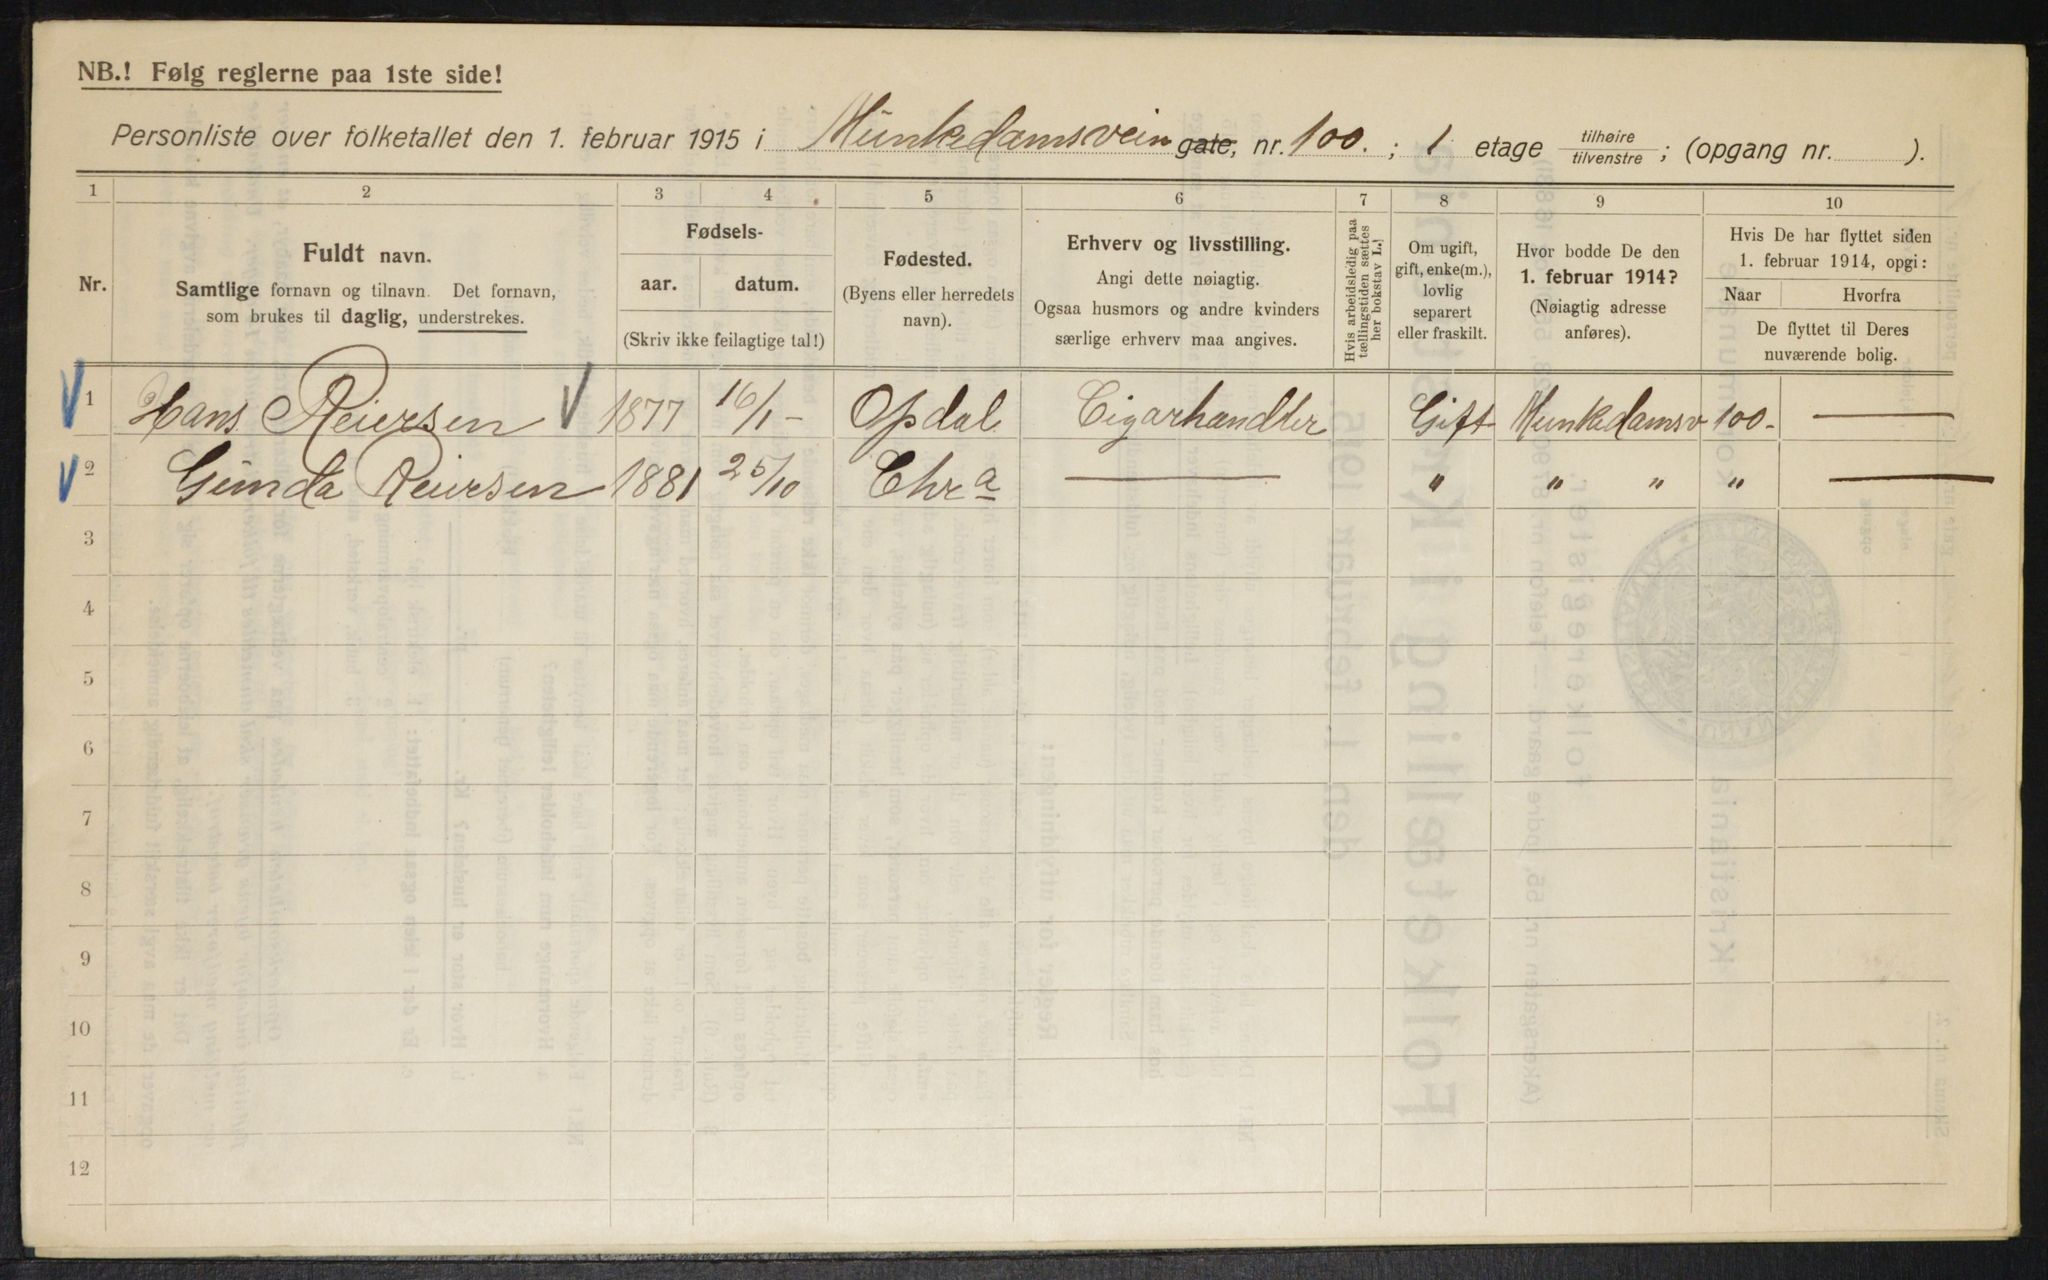 NB.! Følg reglerne paa 1ste side!
Personliste over folketallet den 1. februar 1915 i Munkedamsvein gate, nr. 100. ; 1 etage tilhøire tilvenstre ; (opgang nr. ).
1 2 3 4 5 6 7 8 9 10
Nr.
Fuldt navn.
Samtlige fornavn og tilnavn. Det fornavn,
som brukes til daglig, understrekes.
Fødsels-
aar. datum.
(Skriv ikke feilagtige tal!)
Fødested.
(Byens eller herredets
navn).
Erhverv og livsstilling.
Angi dette nøiagtig.
Ogsaa husmors og andre kvinders
særlige erhverv maa angives.
Hvis arbeidsledig paa
tællingstiden sættes
her bokstav L.!
Om ugift,
gift, enke(m.),
lovlig
separert
eller fraskilt.
Hvor bodde De den
1. februar 1914?
(Nøiagtig adresse
anføres).
Hvis De har flyttet siden
1. februar 1914, opgi:
Naar Hvorfra
De flyttet til Deres
nuværende bolig.
1 Hans Reiersen 1877 16/1 - Opdal Cigarhandler Gift Munkedamsv 100. —
2 Gunda Reiersen 1881 25/10 Chr a — " " " " —
3
4
5
6
7
8
9
10
11
12